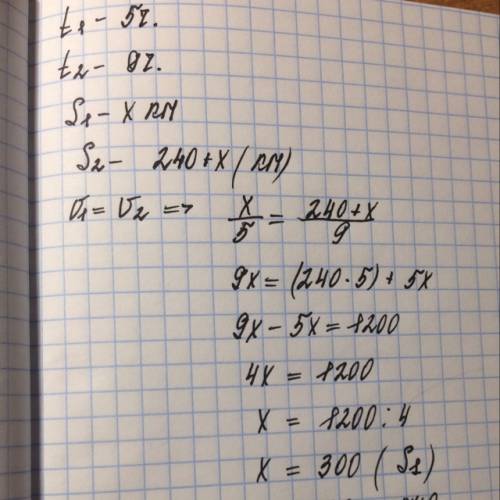 t₁ – 5ч.
t₂ – 9ч.
S₁ – x км
S₂ – 240+x (км)
V₁ = V₂ => x/5 = 240+x/9
9x = (240·5) + 5x
9x – 5x = 1200
4x = 1200
x = 1200 : 4
x = 300 (S₁)